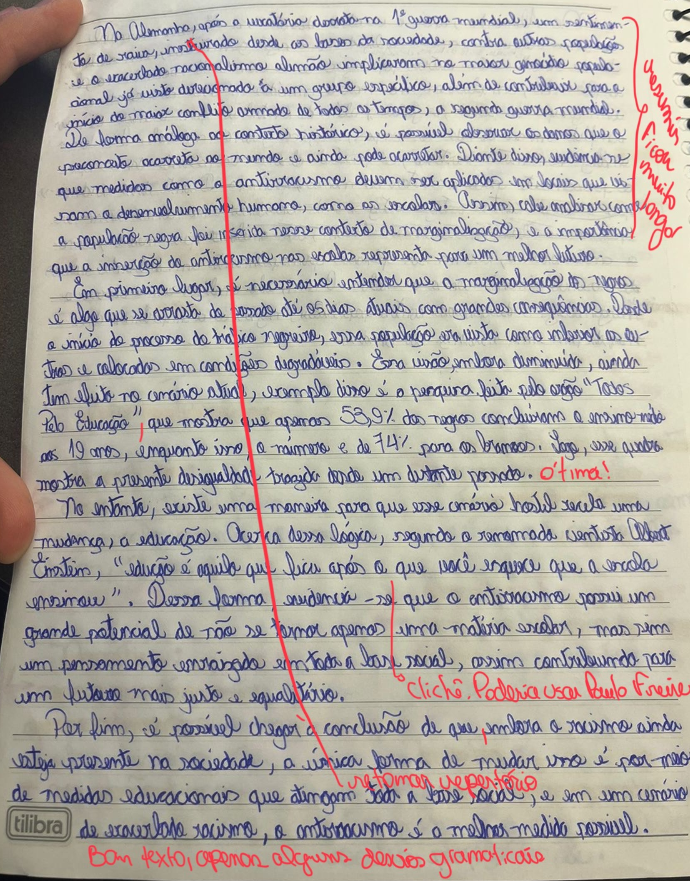 Na Alemanha, após a vexatória derrota na 1ª guerra mundial, um sentimen-
to de raiva, misturado desde as bases da sociedade, contra outras população
e o exacerbado nacionalismo alemão implicaram no maior genocídio popula-
cional já visto direcionado à um grupo específico, além de contribuir para o
início do maior conflito armado de todos os tempos, a segunda guerra mundial.
De forma análoga ao contexto histórico, é possível observar os danos que o
preconceito acarreta ao mundo e ainda pode acarretar. Diante disso, evidencia-se
que medidas como o antirracismo devem ser aplicadas em locais que vi-
sam o desenvolvimento humano, como as escolas. Assim, cabe analisar como
a população negra foi inserida nesse contexto de marginalização, e a importância
que a inserção do antirracismo nas escolas representa para um melhor futuro.
resumir
Ficou
muito
longo
Em primeiro lugar, é necessário entender que a marginalização dos negros
é algo que se arrasta do passado até os dias atuais com grandes consequências. Desde
o início do processo de tráfico negreiro, essa população era vista como inferior as ou-
tras e colocadas em condições degradáveis. Essa visão, embora diminuída, ainda
tem efeito no cenário atual, exemplo disso é a pesquisa feita pelo orgão "Todos
Pela Educação", que mostra que apenas 53,9% dos negros concluíram o ensino médio
aos 19 anos, enquanto isso, o número e de 74% para os brancos. Logo, esse quadro
mostra a presente desigualdade trazida desde um distante passado. Ótima!
No entanto, existe uma maneira para que esse cenário hostil receba uma
mudança, a educação. Acerca dessa lógica, segundo o renomado cientista Albert
Einstein, "edução é aquilo que fica após o que você esquece que a escola
ensinou". Dessa forma, evidencia-se que o antirracismo possui um
grande potencial de não se tornar apenas uma matéria escolar, mas sim
um pensamento enraizado em toda a base social, assim contribuindo para
um futuro mais justo e equalitário.
Clichê. Poderia usar Paulo Freire
Por fim, é possível chegar à conclusão de que, embora o racismo ainda
esteja presente na sociedade, a única forma de mudar isso é por meio
retomar repertório
de medidas educacionais que atingam toda a base social, e em um cenário
de exacerbado racismo, o antirracismo é a melhor medida possível.
tilibra
Bom texto, apenas alguns desvios gramaticais